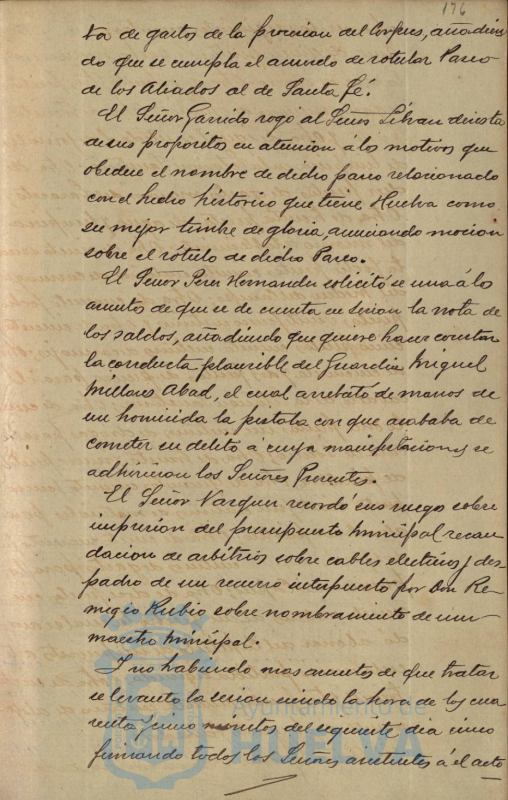 176
ta de gastos de la procesion del Corpus, añadien
do que se cumpla el acuerdo de rotular Paseo
de los Aliados al de Santa Fé.
El Señor Garrido rogó al Señor desista
de sus propósitos en atencion á los motivos que
obedece el nombre de dicho paseo relacionado
con el hecho histórico que tiene Huelva como
su mejor timbre de gloria, anunciando mocion
sobre el rótulo de dicho Paseo.
El Señor Perez Hernandez solicitó se una á los
asuntos de que se de cuenta en sesion la nota de
los saldos, añadiendo que quiere hacer constar
la conducta plausible del Guardia Miguel
Millares Abad, el cual arrebató de manos de
un homicida la pistola con que acababa de
cometer su delito á cuyas manifestaciones se
adhirieron los Señores Presentes.
El Señor Vazquez recordó sus ruegos sobre
impresion del presupuesto municipal recau
dacion de arbitrios sobre cables electricos y des
pacho de un recurso interpuesto por Don Re
migio Rubio sobre nombramiento de un
maestro Municipal.
I no habiendo mas asuntos de que tratar
se levantó la sesion siendo la hora de las cua
renta y cinco minutos del siguiente dia cinco
firmando todos los Señores asistentes á el acto
Ayuntamiento de
HUELVA